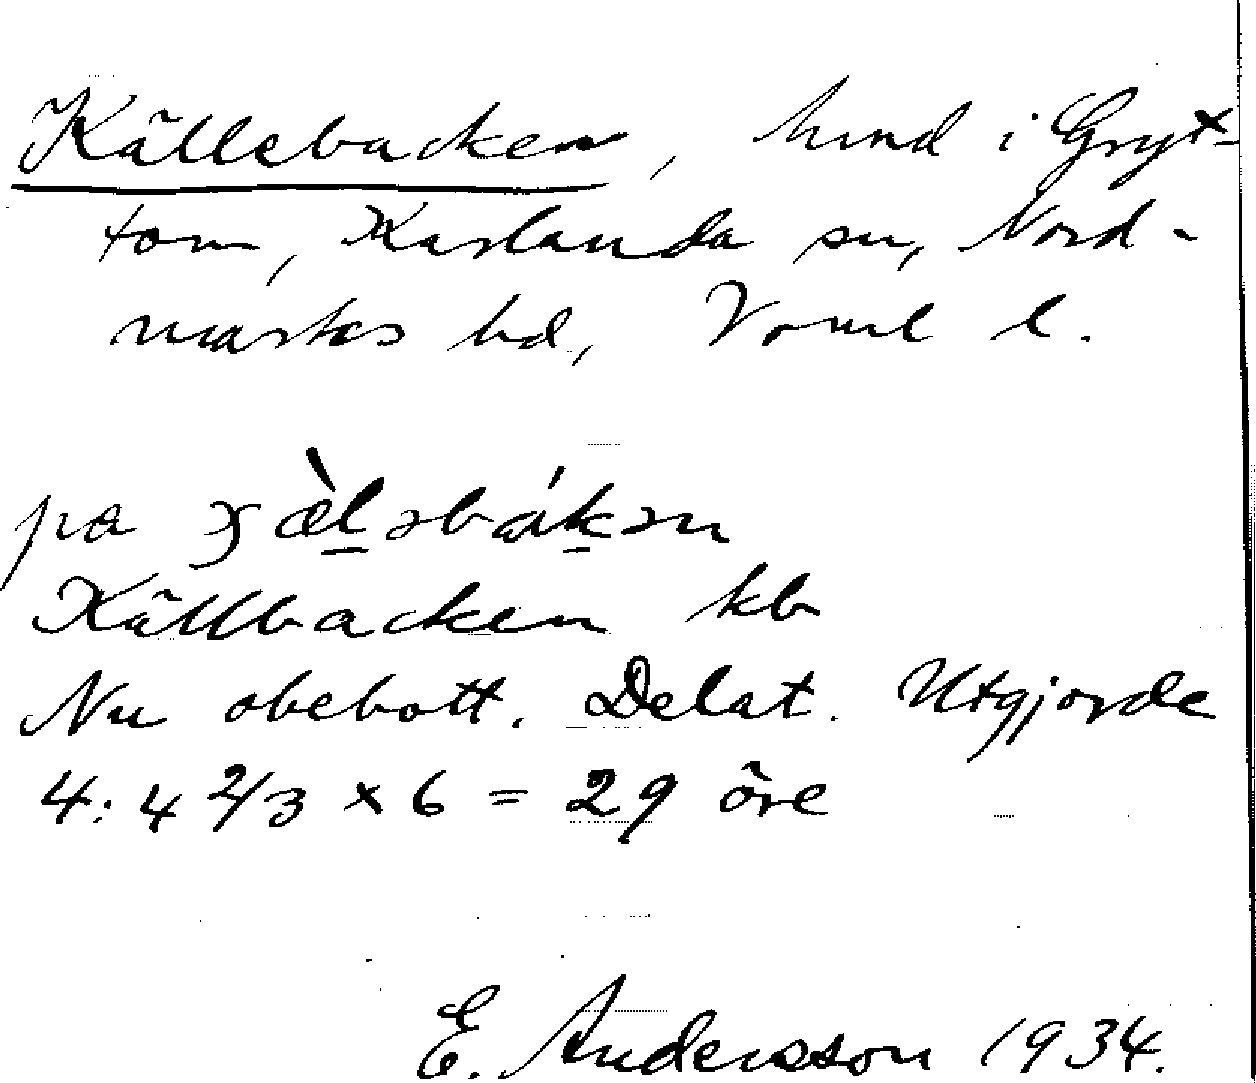 Källebacken, hmd i Gryt-
tom, Karlanda sn, Nord-
marks hd, Vrml l.
pa
Källbacken kb
Nu obebott. Delat. Utgjorde
4:4 2/3 × 6 = 29 öre
E. Andersson 1934.